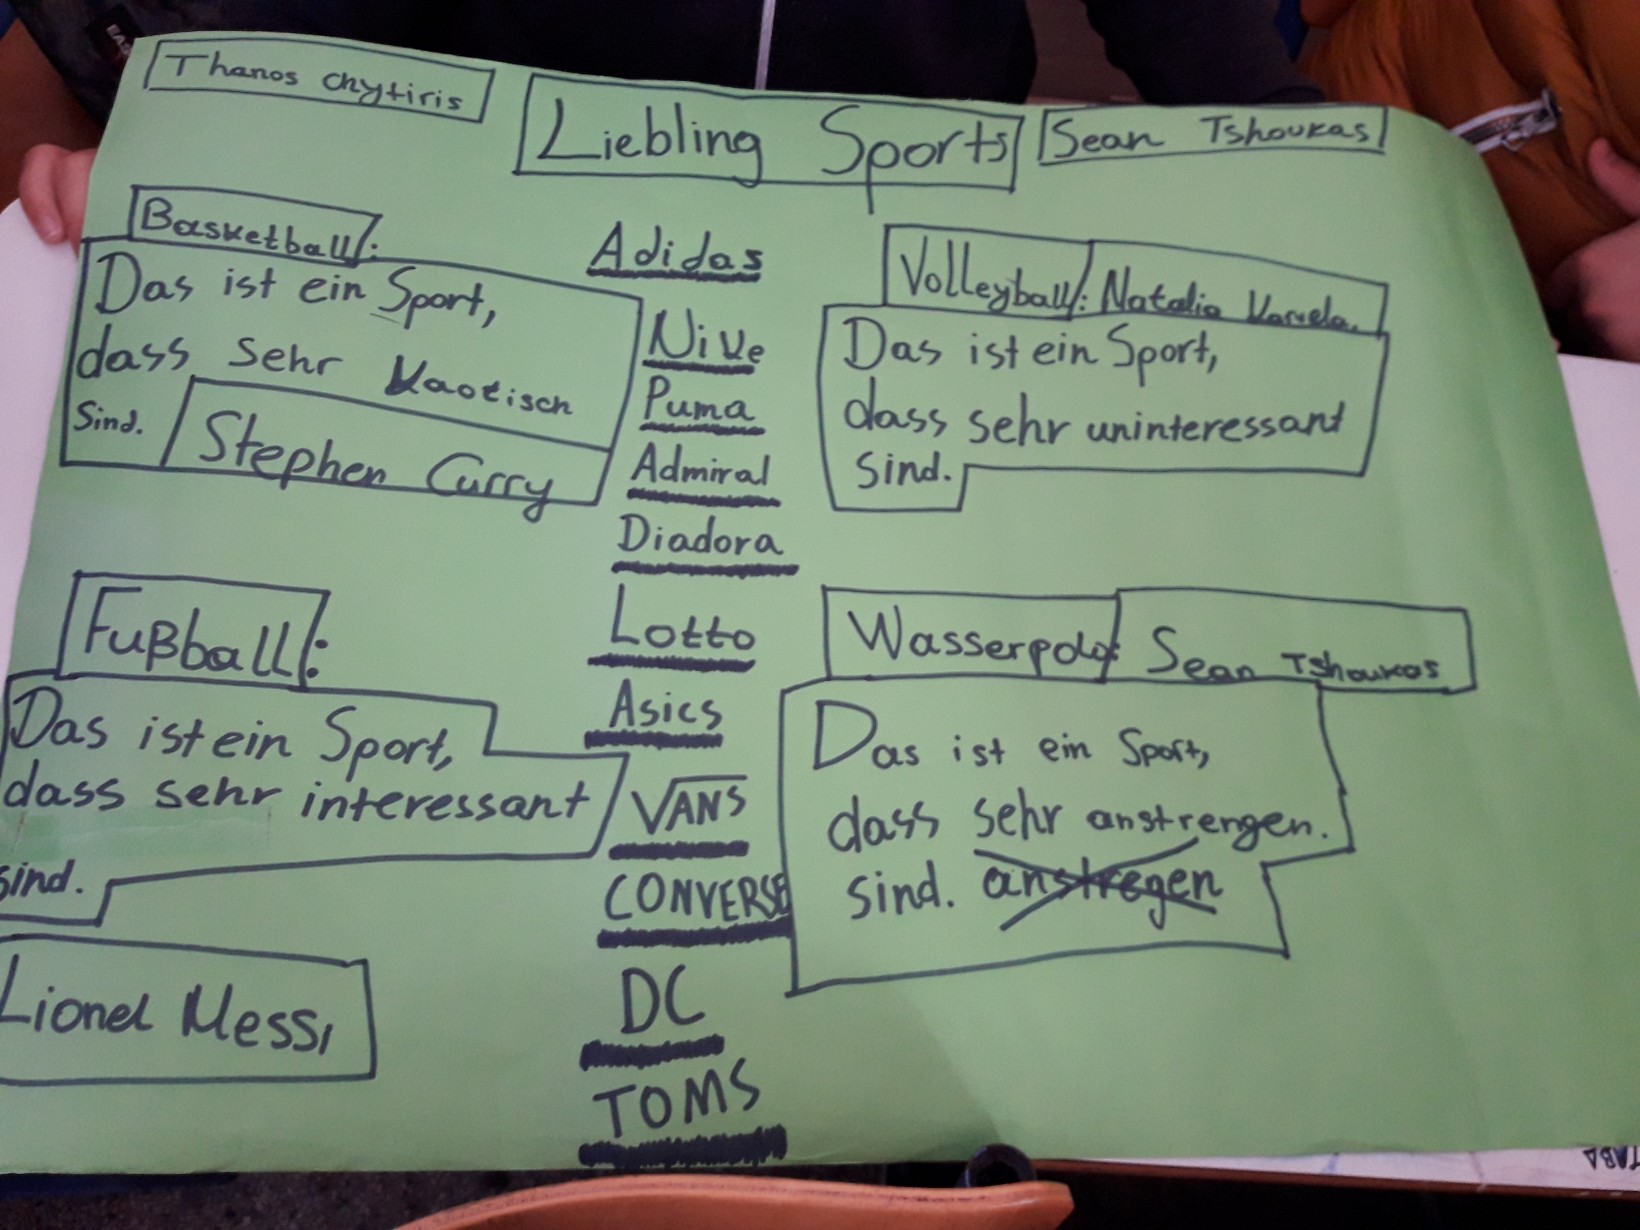 Thanos Chytiris
Liebling Sports
Sean Tshoukas
Basketball:
Das ist ein Sport,
dass sehr kaotisch
sind.
Stephen Curry
Fußball:
Das ist ein Sport,
dass sehr interessant
sind.
Lionel Messi
Adidas
Nike
Puma
Admiral
Diadora
Lotto
Asics
VANS
CONVERSE
DC
TOMS
Volleyball: Natalia
Das ist ein Sport,
dass sehr uninteressant
sind.
Wasserpolo: Sean Tshoukas
Das ist ein Sport,
dass sehr anstrengen.
sind. anstregen
TABA